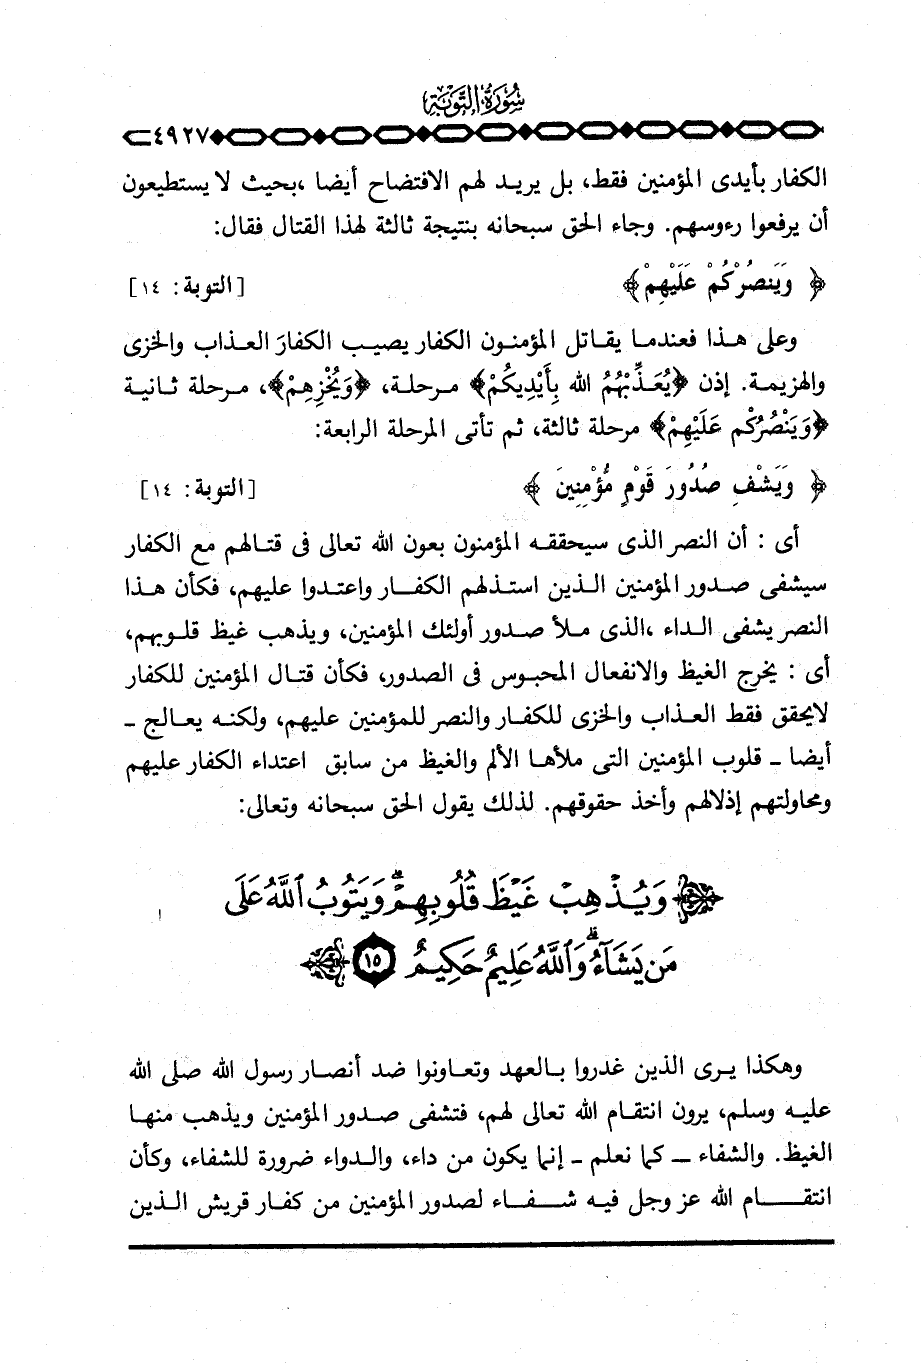 سُورَةُ التَّوْبَةِ
٤٩٢٧
الكفار بأيدى المؤمنين فقط، بل يريد لهم الافتضاح أيضا ،بحيث لا يستطيعون
أن يرفعوا رءوسهم. وجاء الحق سبحانه بنتيجة ثالثة لهذا القتال فقال:
﴿ وَيَنصُرْكُمْ عَلَيْهِمْ ﴾ [التوبة: ١٤]
وعلى هذا فعندما يقاتل المؤمنون الكفار يصيب الكفارَ العذاب والخزى
والهزيمة. إذن ﴿يُعَذِّبْهُمُ الله بِأَيْدِيكُمْ﴾ مرحلة، ﴿وَيُخْزِهِمْ﴾، مرحلة ثانية
﴿وَيَنْصُرْكُم عَلَيْهِمْ﴾ مرحلة ثالثة، ثم تأتى المرحلة الرابعة:
﴿ وَيَشْفِ صُدُورَ قَوْمٍ مُّؤْمِنِينَ ﴾ [التوبة: ١٤]
أى : أن النصر الذى سيحققه المؤمنون بعون الله تعالى فى قتالهم مع الكفار
سيشفى صدور المؤمنين الذين استذلهم الكفار واعتدوا عليهم، فكأن هذا
النصر يشفى الداء ،الذى ملأ صدور أولئك المؤمنين، ويذهب غيظ قلوبهم،
أى : يخرج الغيظ والانفعال المحبوس فى الصدور، فكأن قتال المؤمنين للكفار
لايحقق فقط العذاب والخزى للكفار والنصر للمؤمنين عليهم، ولكنه يعالج ـ
أيضا ـ قلوب المؤمنين التى ملأها الألم والغيظ من سابق اعتداء الكفار عليهم
ومحاولتهم إذلالهم وأخذ حقوقهم. لذلك يقول الحق سبحانه وتعالى:
وَيُذْهِبْ غَيْظَ قُلُوبِهِمْ ۗ وَيَتُوبُ ٱللَّهُ عَلَىٰ
مَن يَشَآءُ ۗ وَٱللَّهُ عَلِيمٌ حَكِيمٌ ١٥
وهكذا يرى الذين غدروا بالعهد وتعاونوا ضد أنصار رسول الله صلى الله
عليه وسلم، يرون انتقام الله تعالى لهم، فتشفى صدور المؤمنين ويذهب منها
الغيظ. والشفاء ـ كما نعلم ـ إنما يكون من داء، والدواء ضرورة للشفاء، وكأن
انتقام الله عز وجل فيه شفاء لصدور المؤمنين من كفار قريش الذين